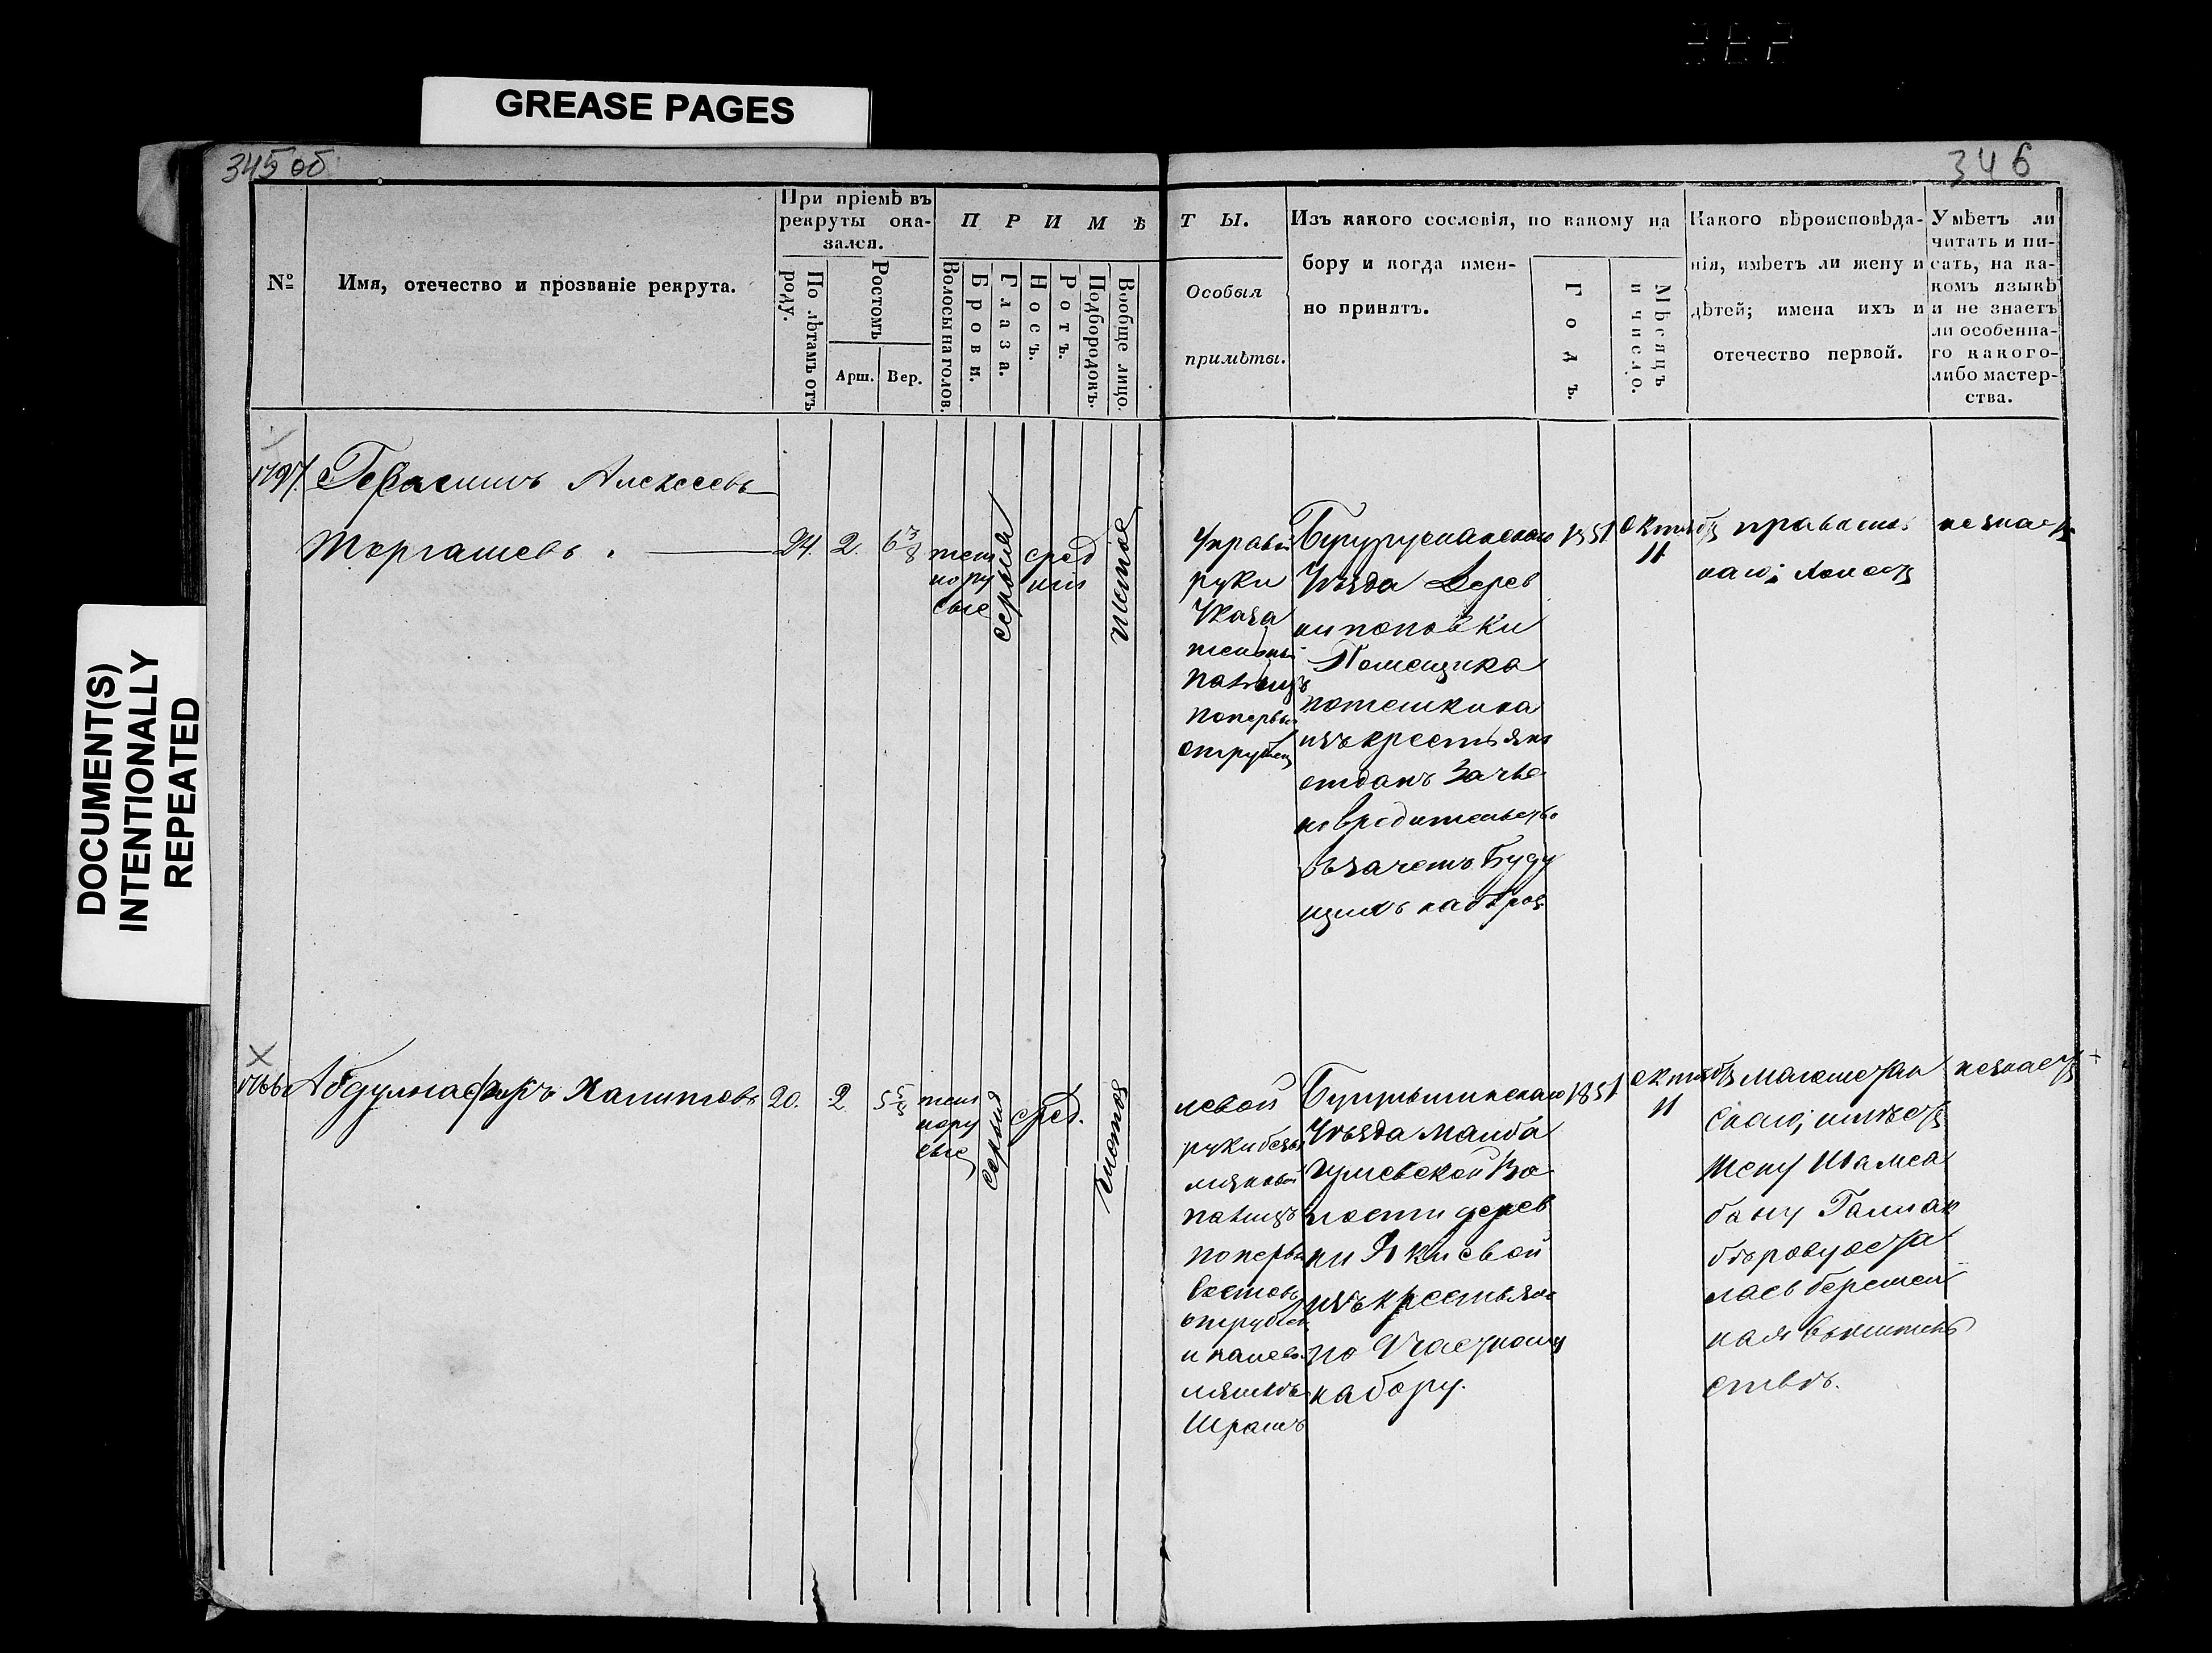 GREASE PAGES
DOCUMENT(S)
INTENTIONALLY
REPEATED
345 об
346
№
Имя, отечество и прозваніе рекрута.
При пріемѣ въ
рекруты ока-
зался.
По лѣтамъ отъ
роду.
Ростомъ
Арш.
Вер.
ПРИМѢТЫ.
Волосы на голов.
Брови.
Глаза.
Носъ.
Ротъ.
Подбородокъ.
Вообще лицо.
Особыя
примѣты.
Изъ какого сословія, по какому на
бору и когда имен-
но принятъ.
Годъ.
Мѣсяцъ
и число.
Какого вѣроисповѣда-
нія, имѣетъ ли жену и
дѣтей; имена ихъ и
отечество первой.
Умѣетъ ли
читать и пи-
сать, на ка-
комъ языкѣ
и не знаетъ
ли особенна-
го какого-
либо мастер-
ства.
Герасимъ Алексеевъ
24. 2. 6 3/8
тем
нору
сые
серые
сред
ніи
У правой
руки
Указа
тельный
палецъ
Бугурусланскаго
Уѣзда Дерев
ни поповки
Помещика
потемкина
изъ крестьянъ
отданъ За чле
новредительство
въ зачетъ Буду
щихъ наборов
1851
Октяб
11
правосла
наго; Холост
незнает
Абдулгафиръ Халитовъ
20. 2 5 5/8
тем
нору
сые
серыя
сред.
чистое
левой
руки безъи
мяннои
палецъ
поперв
составъ
и налев
Шрамъ
Бугульминскаго
Уѣзда
Во
лости дерев
ни
изъ крестьянъ
по Участному
набору.
1851
Октяб
11
Магометан
скаго; имѣет
Жену Шамса
бану Галиак
бѣрову оста
лась беремен
ная въ жител
ствѣ.
незнает